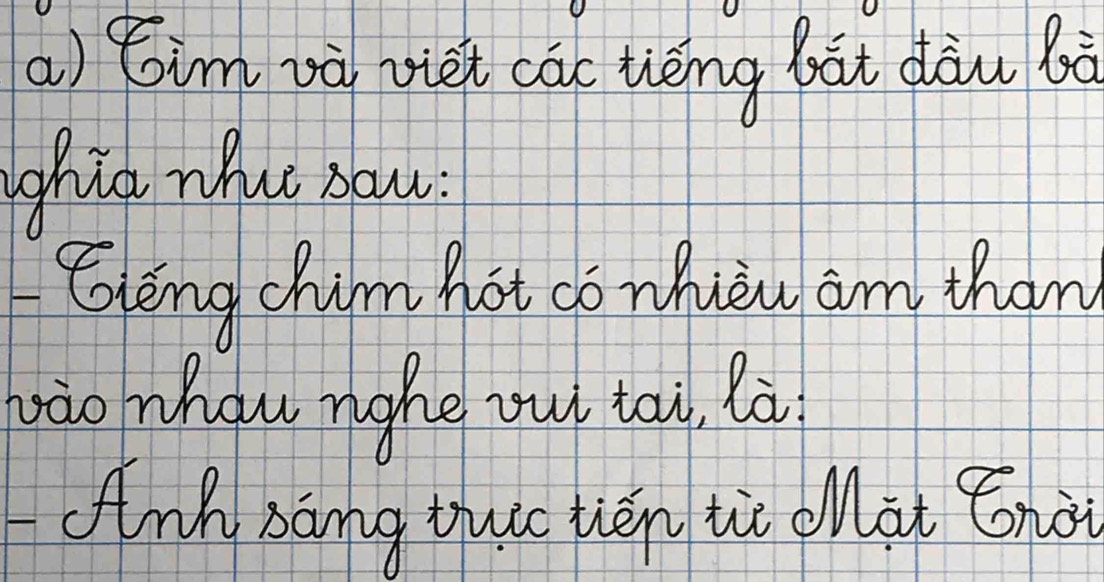 a) Tìm và viết các tiếng bắt đầu bằ
nghĩa như sau:
- Tiếng chim hót có nhiều âm thanh
vào nhau nghe vui tai, là:
- Ánh sáng trực tiếp từ Mặt Trời